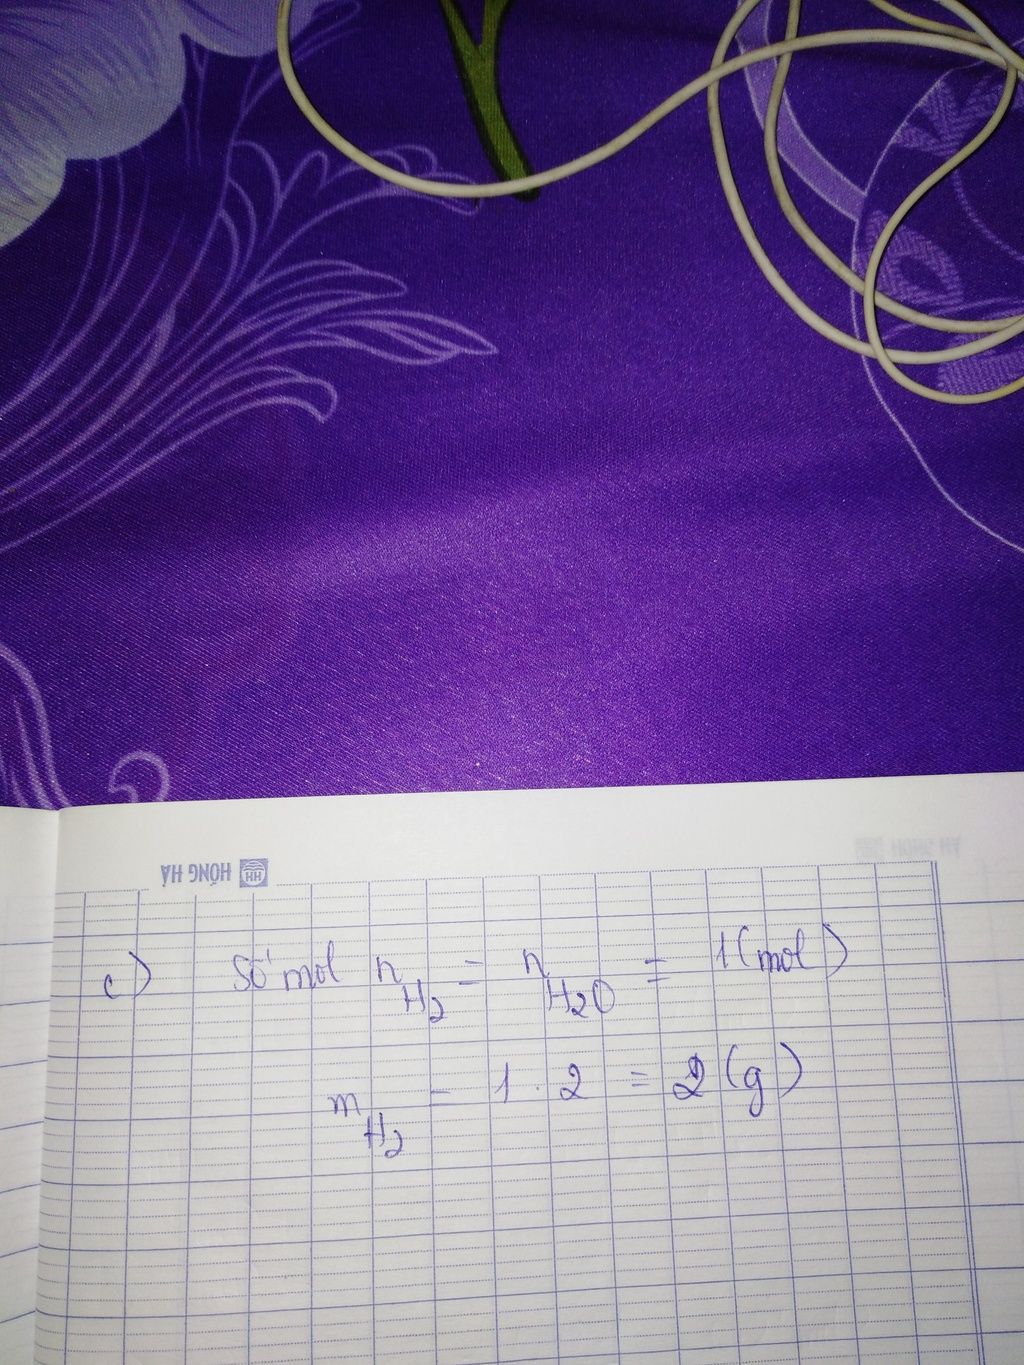 HỒNG HÀ
c) Số mol n H2 = n H2O = 1 (mol)
m H2 = 1 . 2 = 2 (g)